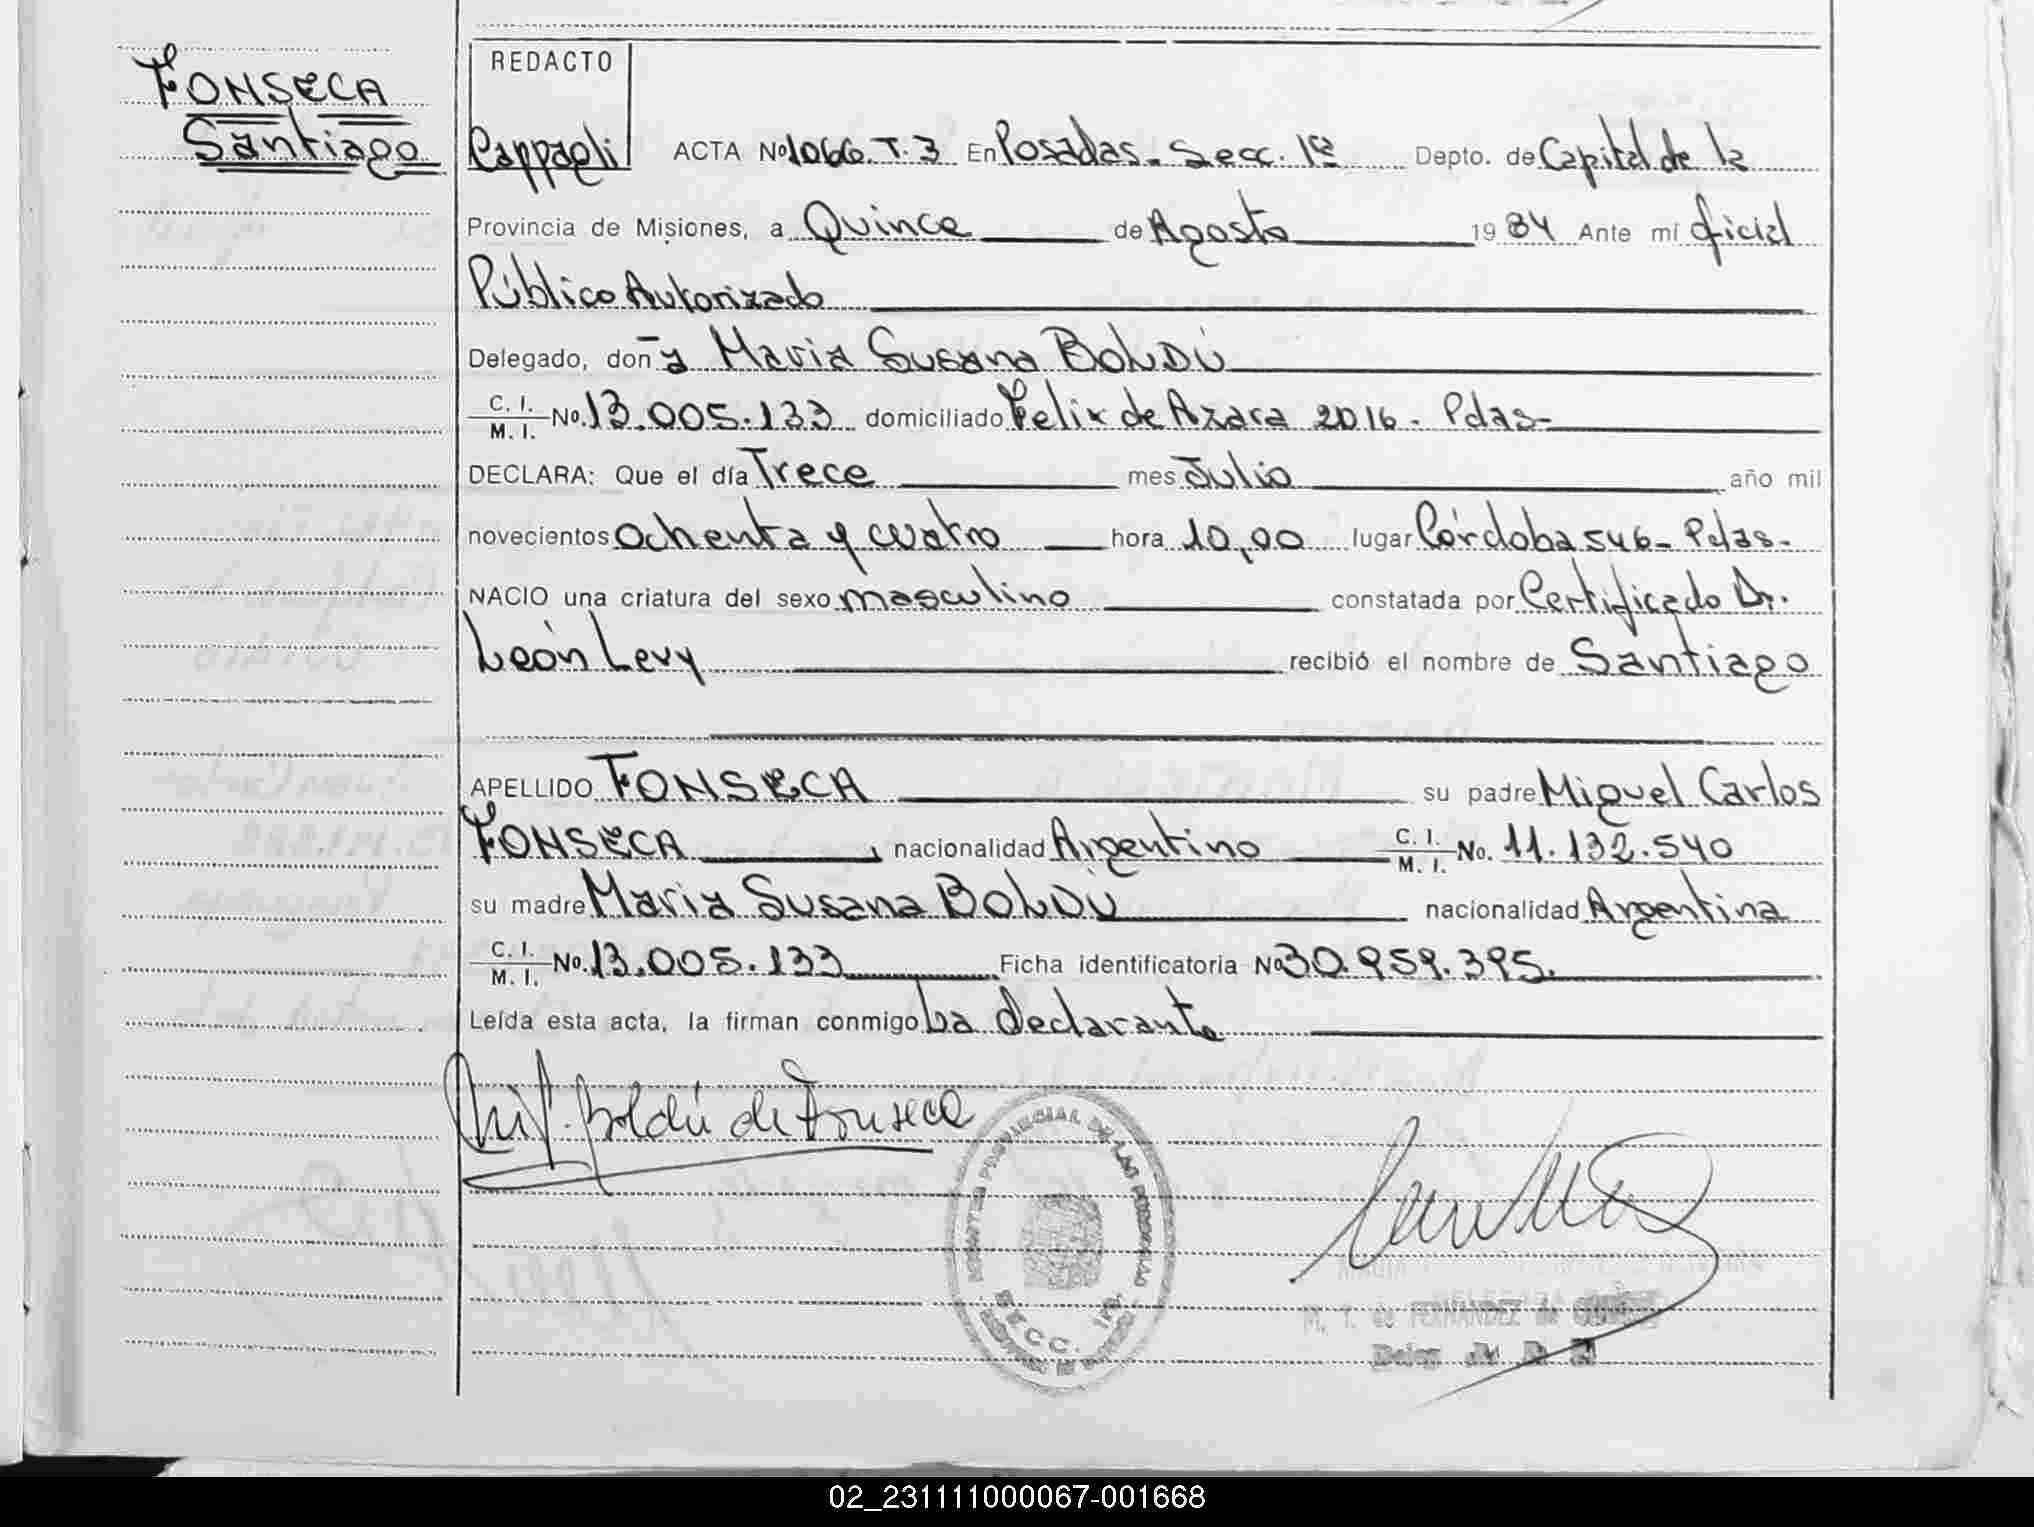 FONSECA
Santiago
REDACTO
Cappagli
ACTA Nº 1066. T. 3 En Posadas. Secc. 1ª Depto. de Capital de la
Provincia de Misiones, a Quince de Agosto 1984 Ante mí Oficial
Público Autorizado
Delegado, donña Maria Susana BOLDÚ
C. I. M. I. No. 13.005.133 domiciliado Felix de Azara 2016 - Pdas-
DECLARA: Que el día Trece mes Julio año mil
novecientos ochenta y cuatro hora 10,00 lugar Córdoba 546- Pdas-
NACIO una criatura del sexo masculino constatada por Certificado Dr.
León Levy recibió el nombre de Santiago
APELLIDO FONSECA su padre Miguel Carlos
FONSECA, nacionalidad Argentino C. I. M. I. No. 11.132.540
su madre Maria Susana BOLDÚ nacionalidad Argentina
C. I. M. I. No. 13.005.133 Ficha identificatoria Nº 30.959.395.
Leída esta acta, la firman conmigo La declarante
Boldú de Fonseca
PROVINCIAL DE LAS PERSONAS
SECC. 1ra.
M. T. de FERNANDEZ de
02_231111000067-001668